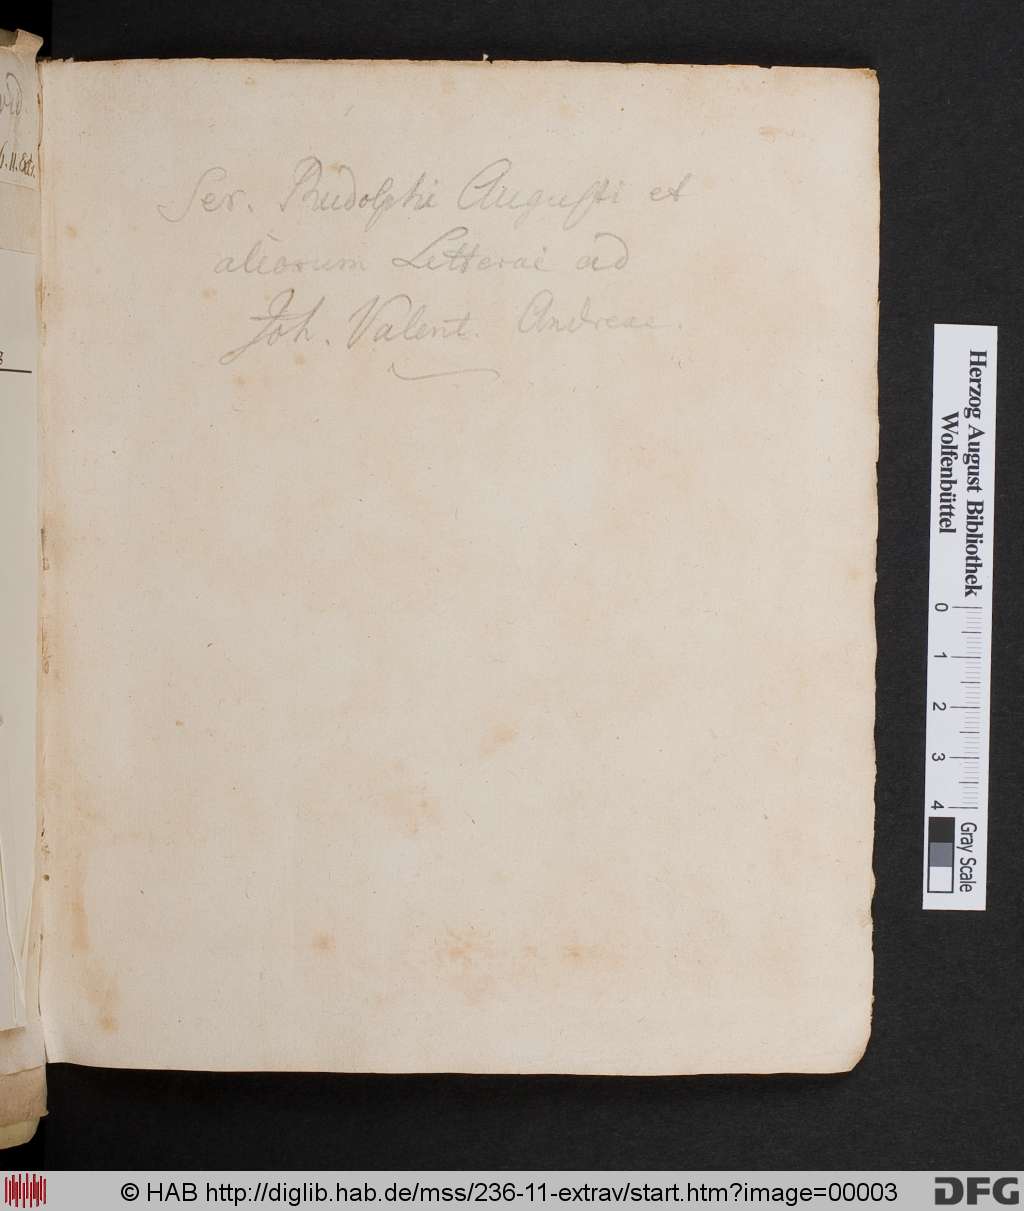 Ser. Rudolphi Augusti et
aliorum Litterae ad
Joh. Valent. Andreae.
Herzog August Bibliothek
Wolfenbüttel
0 1 2 3 4
Gray Scale
© HAB http://diglib.hab.de/mss/236-11-extrav/start.htm?image=00003
DFG